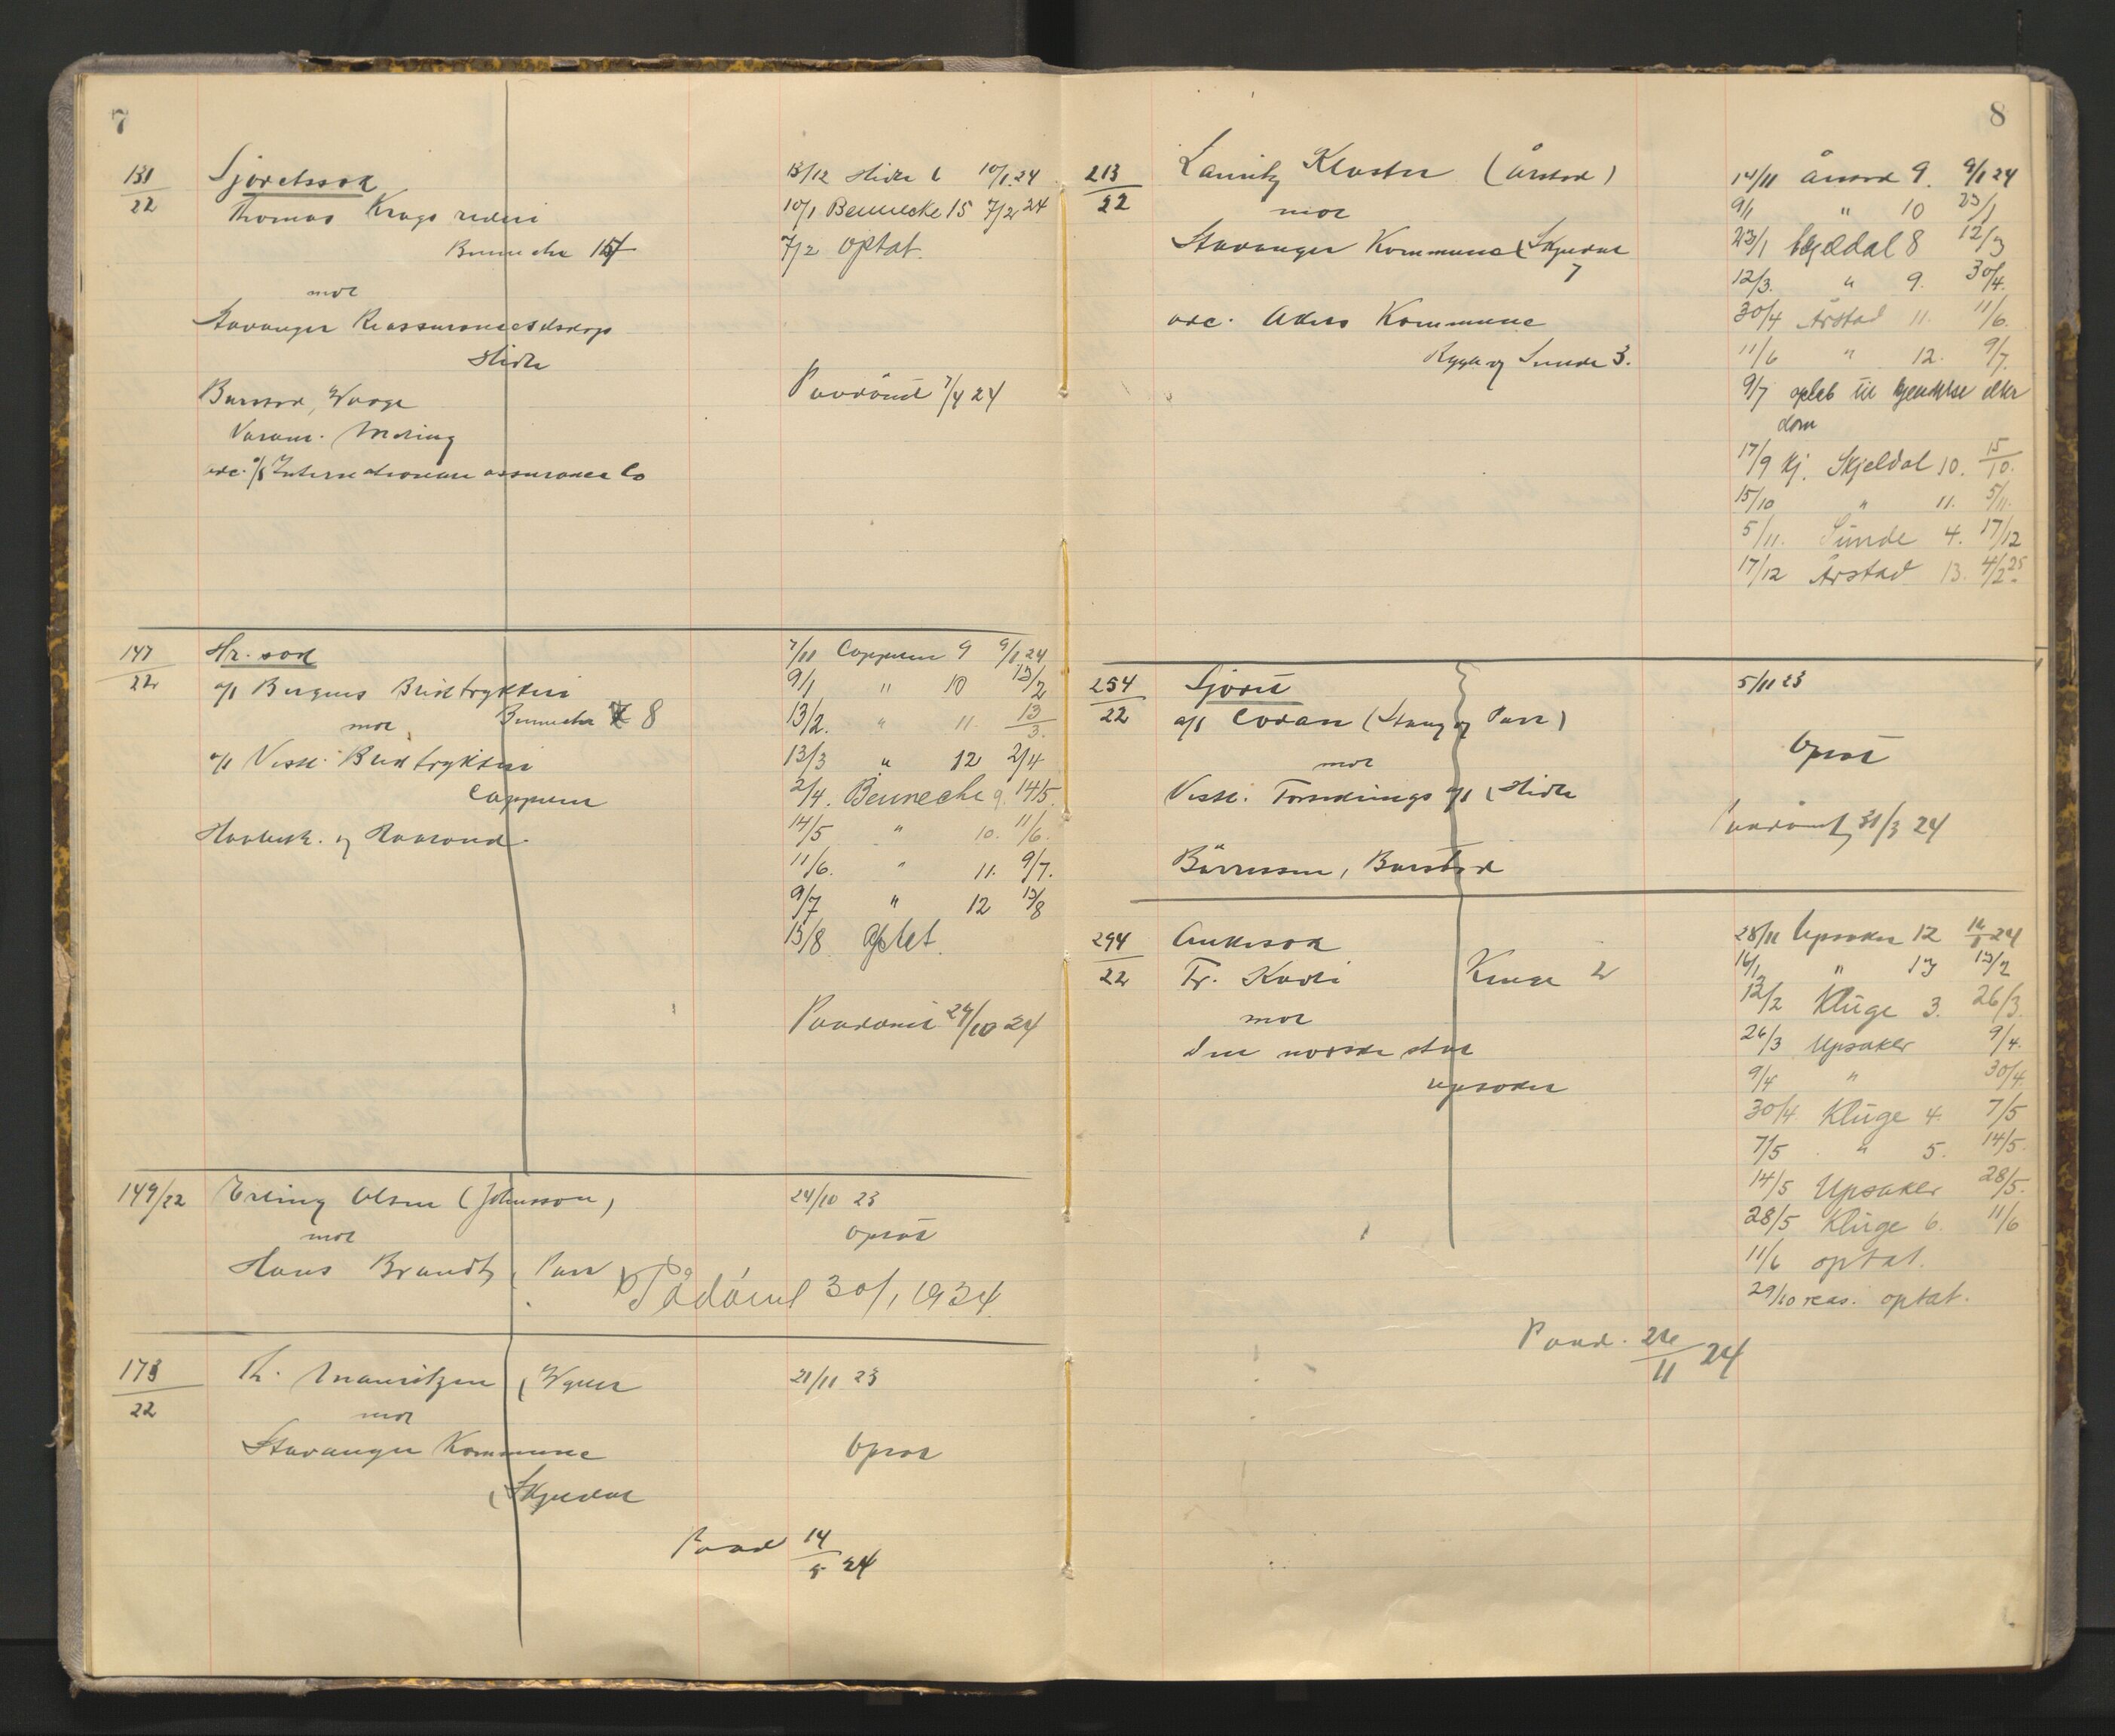 7
131/22
Sjøretssak
Thomas Krags rederi
Bennecke 15
mot
Stavanger Reassuranceselskap
Hidle
Barstad, Waage
Varam. Meling
adc. a/s Internationale assurance Co
13/12 Hidle 6 10/1.24
10/1 Bennecke 15 7/2 24
7/2 optat.
Paadömt 7/4 24
147/22
Hr. sak
a/s Bergens Bliktrykkeri
mot Bennecke 8
a/s Vestl. Bliktrykkeri
Cappelen
7/11 Cappelen 9 9/1 24
9/1 " 10 13/2
13/2. " 11. 13/3.
13/3 " 12 2/4
2/4. Bennecke 9. 14/5.
14/5 " 10. 11/6.
11/6. " 11. 9/7.
9/7 " 12 13/8
13/8 optat.
Paadömt 24/10 24
149/22
Erling Olsen (Johnsson)
mot
Hans Brandt, Parr
24/10 23
Opsat
Pådømt 30/1 1934.
173/22
Th. Mauritzen
mot
Stavanger Kommune
(Skjeldal
21/11 23
Opsat
Paad 14/5 24
8
213/22
Kloster (Årstad)
mot
Stavanger Kommune (Skjeldal
7
adc. Akers Kommune
Rygh og Sunde 3.
14/11 Årstad 9. 9/1 24
9/1 " 10 23/1
23/1 Skjeldal 8 12/3
12/3. " 9. 30/4.
30/4 Årstad 11. 11/6.
11/6 " 12. 9/7.
9/7 optat til kjendelse eller
dom
17/9 kj. Skjeldal 10. 15/10.
15/10 " 11. 5/11.
5/11. Sunde 4. 17/12
17/12 Årstad 13. 4/2 25.
254/22
Sjøret
a/s Codan (Stang og Parr)
mot
Vestl. Forsikrings a/s (Hidle
Börresen, Barstad
5/11 23
Opsat
Paadömt 31/3 24
294/22
Ankesak
Kluge 2
mot
Den norske stat
Upsaker
28/11 Upsaker 12 16/1 24
16/1 " 13 13/2
13/2 Kluge 3. 26/3.
26/3 Upsaker 9/4.
9/4 " 30/4.
30/4. Kluge 4. 7/5
7/5 " 5. 14/5.
14/5 Upsaker 28/5.
28/5 Kluge 6. 11/6
11/6 optat.
29/10 reas. optat.
Paad. 26/11 24